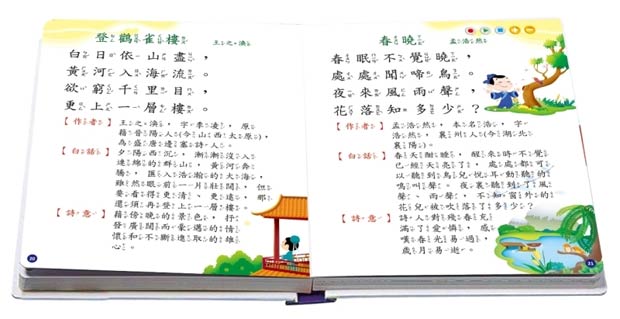 登鸛雀樓
王之渙
白日依山盡，
黃河入海流。
欲窮千里目，
更上一層樓。
【作者】王之渙，字季凌，原
籍晉陽人(今山西太原)，
為盛唐邊塞詩人。
【白話】夕陽西沉，漸漸沒入
連綿的群山，黃河奔
騰，匯入浩瀚的大海。
雖然眼前一片壯闊，但
要看得更清、更遠，那
還須再登上一層樓。
【詩意】藉傍晚的景色，抒
發廣闊而豪邁的情
懷和不斷進取的雄
心。
20
春曉
孟浩然
春眠不覺曉，
處處聞啼鳥。
夜來風雨聲，
花落知多少？
【作者】孟浩然，本名浩，字
浩然，襄州人(今湖北
襄陽)。
【白話】春天酣睡，醒來時不覺
已經天亮了，處處都可
以聽到鳥兒悅耳動聽的
鳴叫聲。夜裏聽到了風
聲、雨聲，不知窗外的
花兒被吹落了多少？
【詩意】詩人對殘春充
滿了愛憐，感
嘆春光易過，
歲月易逝。
21